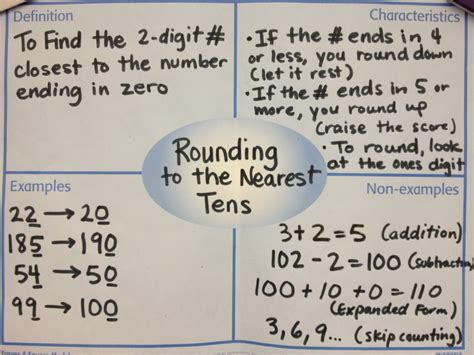 Definition
To Find the 2-digit #
closest to the number
ending in zero
Characteristics
• If the # ends in 4
or less, you round down
(let it rest)
• If the # ends in 5 or
more, you round up
(raise the score)
• To round, look
at the ones digit
Rounding
to the Nearest
Tens
Examples
22 → 20
185 → 190
54 → 50
99 → 100
Non-examples
3+2=5 (addition)
102 - 2 = 100 (subtraction)
100 + 10 + 0 = 110
(Expanded Form)
3, 6, 9... (skip counting)